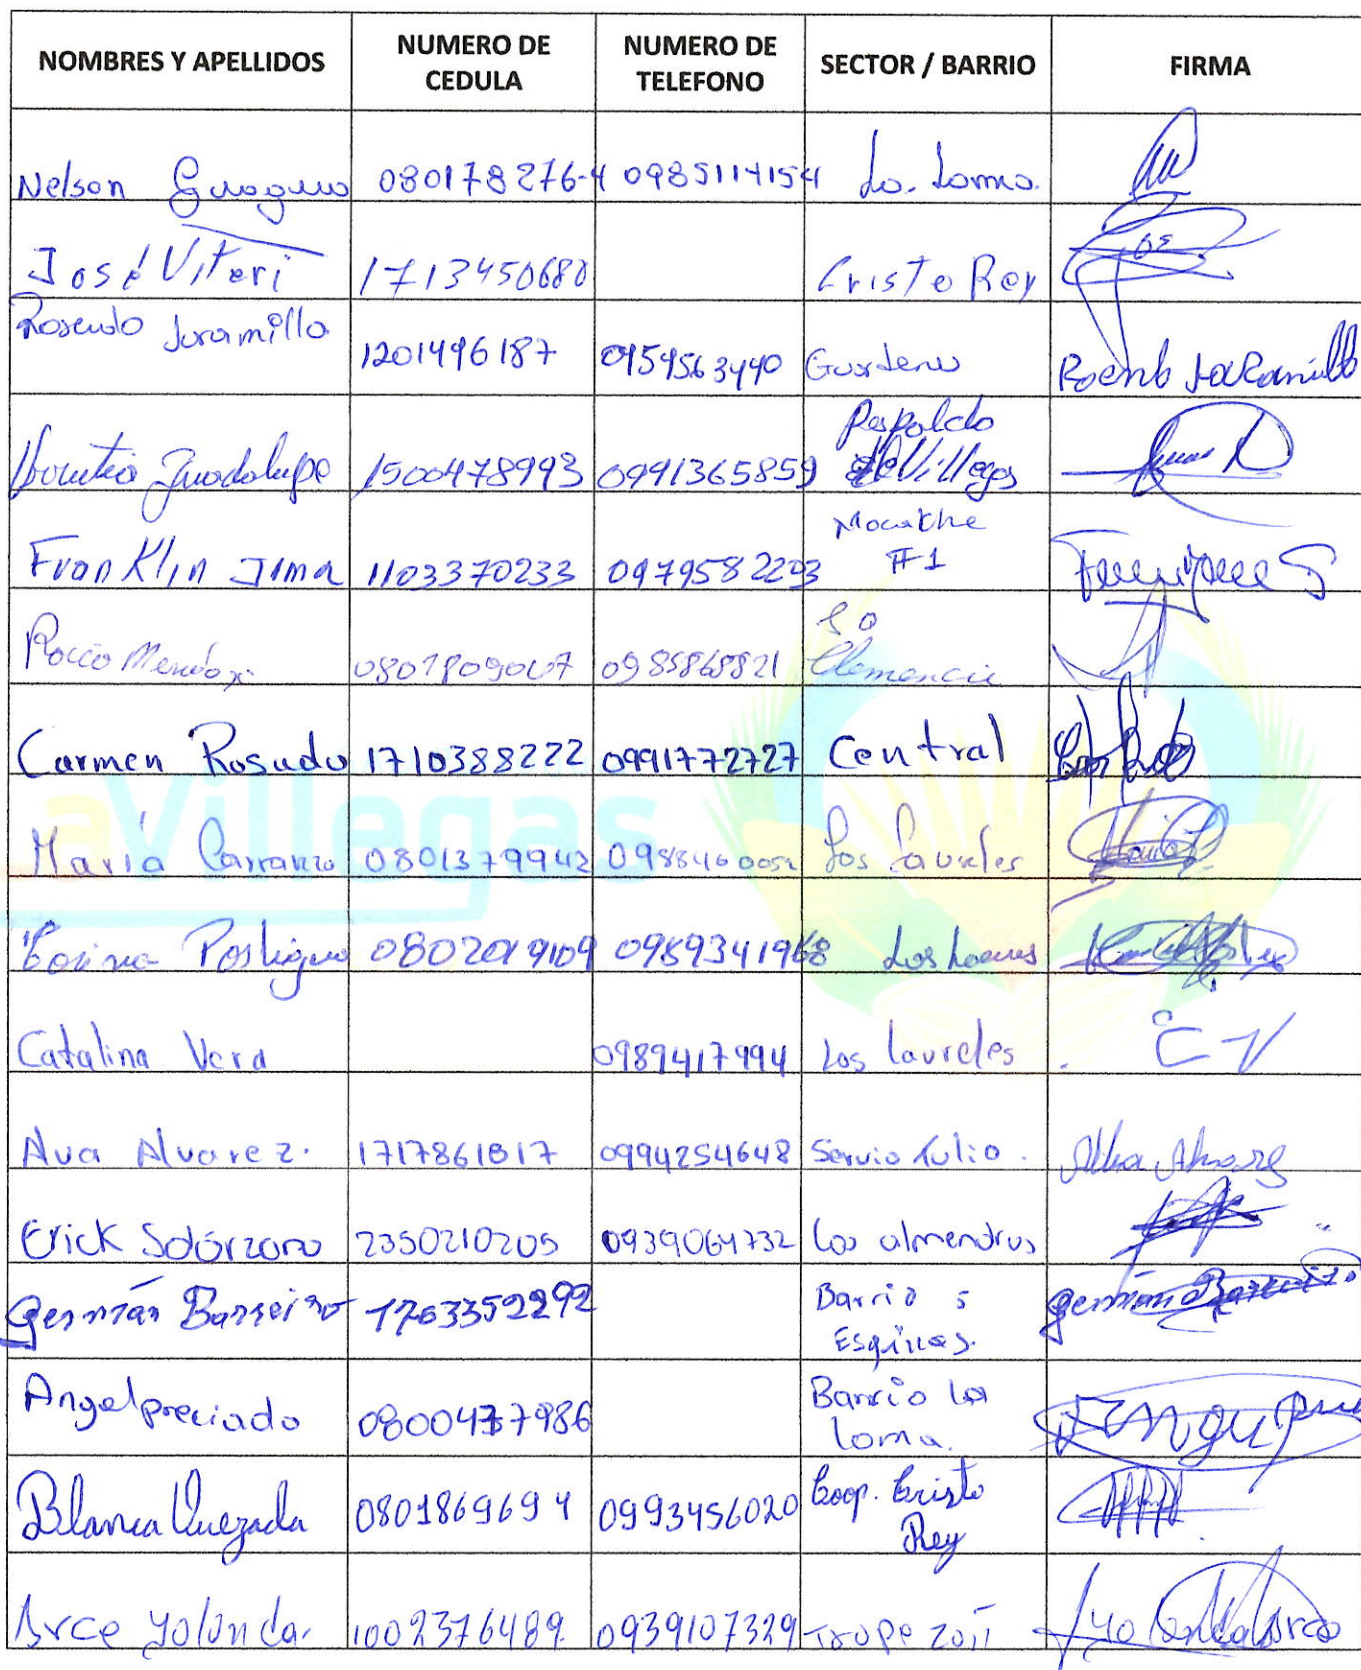 NOMBRES Y APELLIDOS NUMERO DE CEDULA NUMERO DE TELEFONO SECTOR / BARRIO FIRMA
Nelson 080178276-4 0985114154 La. Loma.
José Viteri 1713450680 Cristo Rey
Rosendo Jaramillo 1201496187 0959563440
Guadalupe 1500478993 0991365859 Respaldo Villegas
Franklin Jima 1103370233 0979582293 #1
Rocio Mendoza 0985868821 La Clemencia
Carmen Rosado 1710388222 0991772727 Central
María Carranza 0801379942 0988460052 Los Laureles
0802019109 0989341968
Catalina Vera 0989417994 Los laureles C V
Alvarez. 1717861817 0994254648 Servio Tulio.
Erick Solórzano 2350210205 0939064732 Los almendros
Germán Barreiro 1703352292 Barrio 5 Esquinas. Germán
Angel preciado 0800437986 Barrio La loma.
Blanca Quezada 080186969 4 0993456020 Coop. Cristo Rey
Arce Yolanda. 1002376489. 0939107329
aVillegas